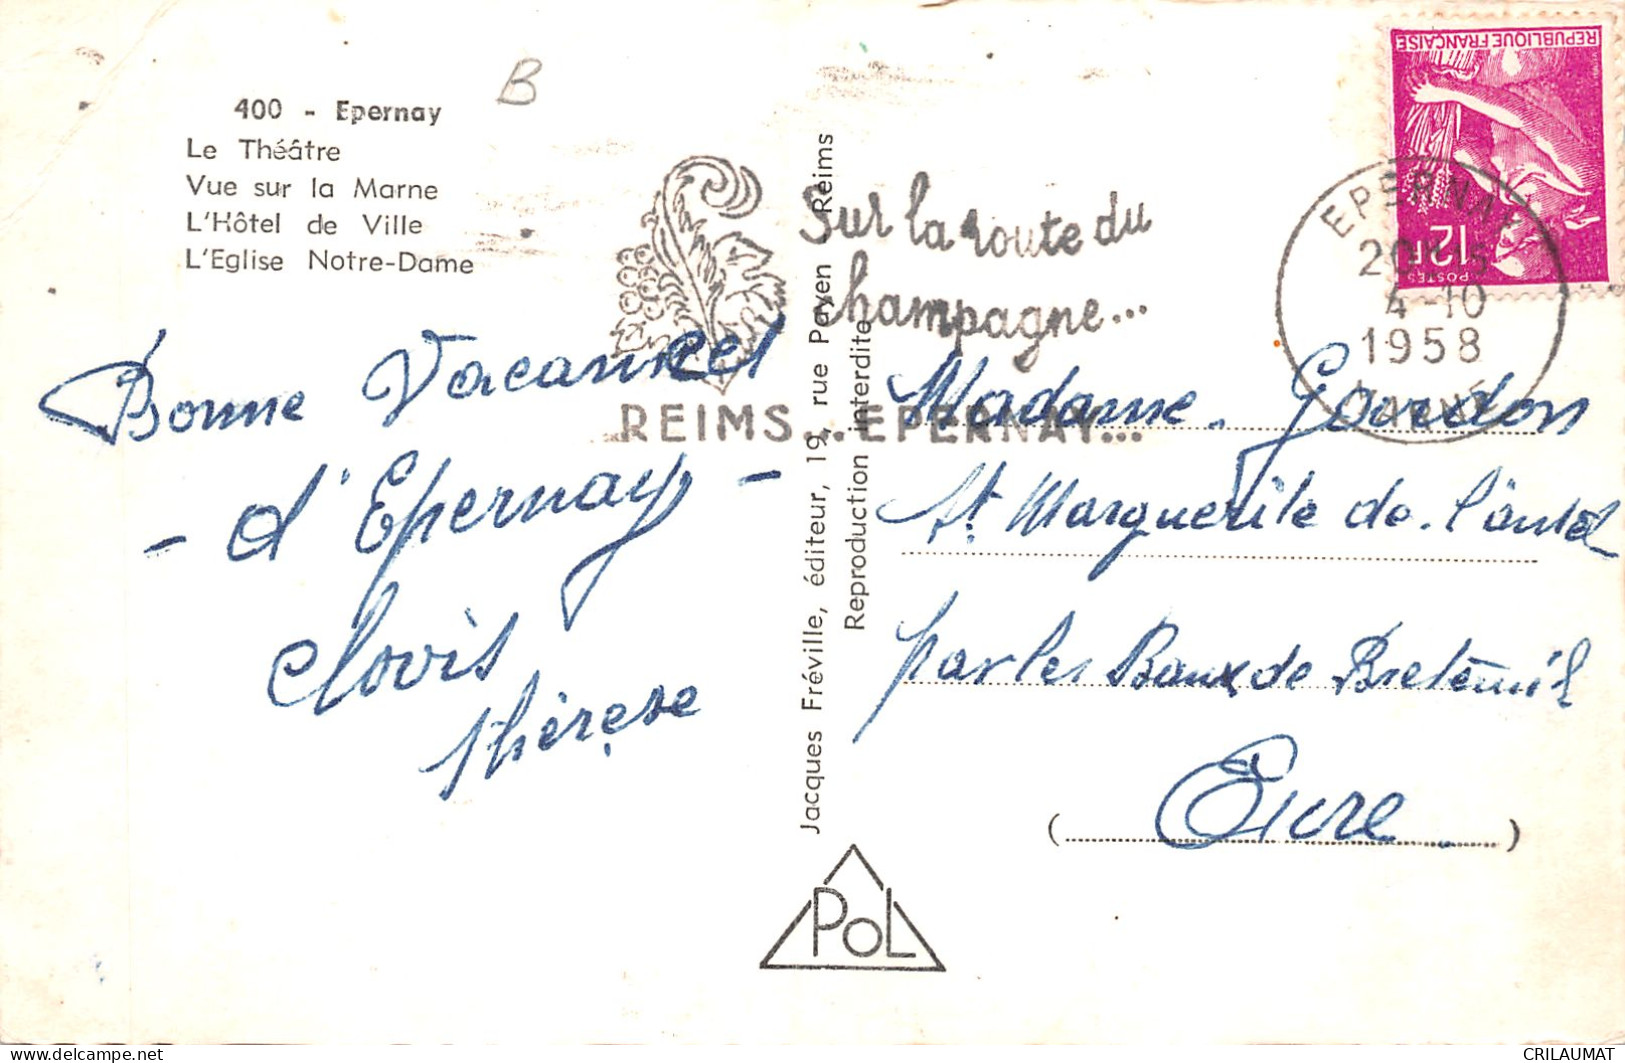 B
400 - Epernay
Le Théâtre
Vue sur la Marne
L'Hôtel de Ville
L'Eglise Notre-Dame
Bonne Vacances
- d'Epernay -
Clovis
Thérèse
Sur la route du
champagne...
REIMS... EPERNAY...
Jacques Fréville, éditeur, 19, rue Payen Reims
Reproduction interdite
POL
REPUBLIQUE FRANÇAISE
12F
POSTES
EPERNAY
20H15
4-10
1958
MARNE
Madame Gourdon
St Marguerite de l'autel
par les Baux de Breteuil
(Eure)
delcampe.net
CRILAUMAT